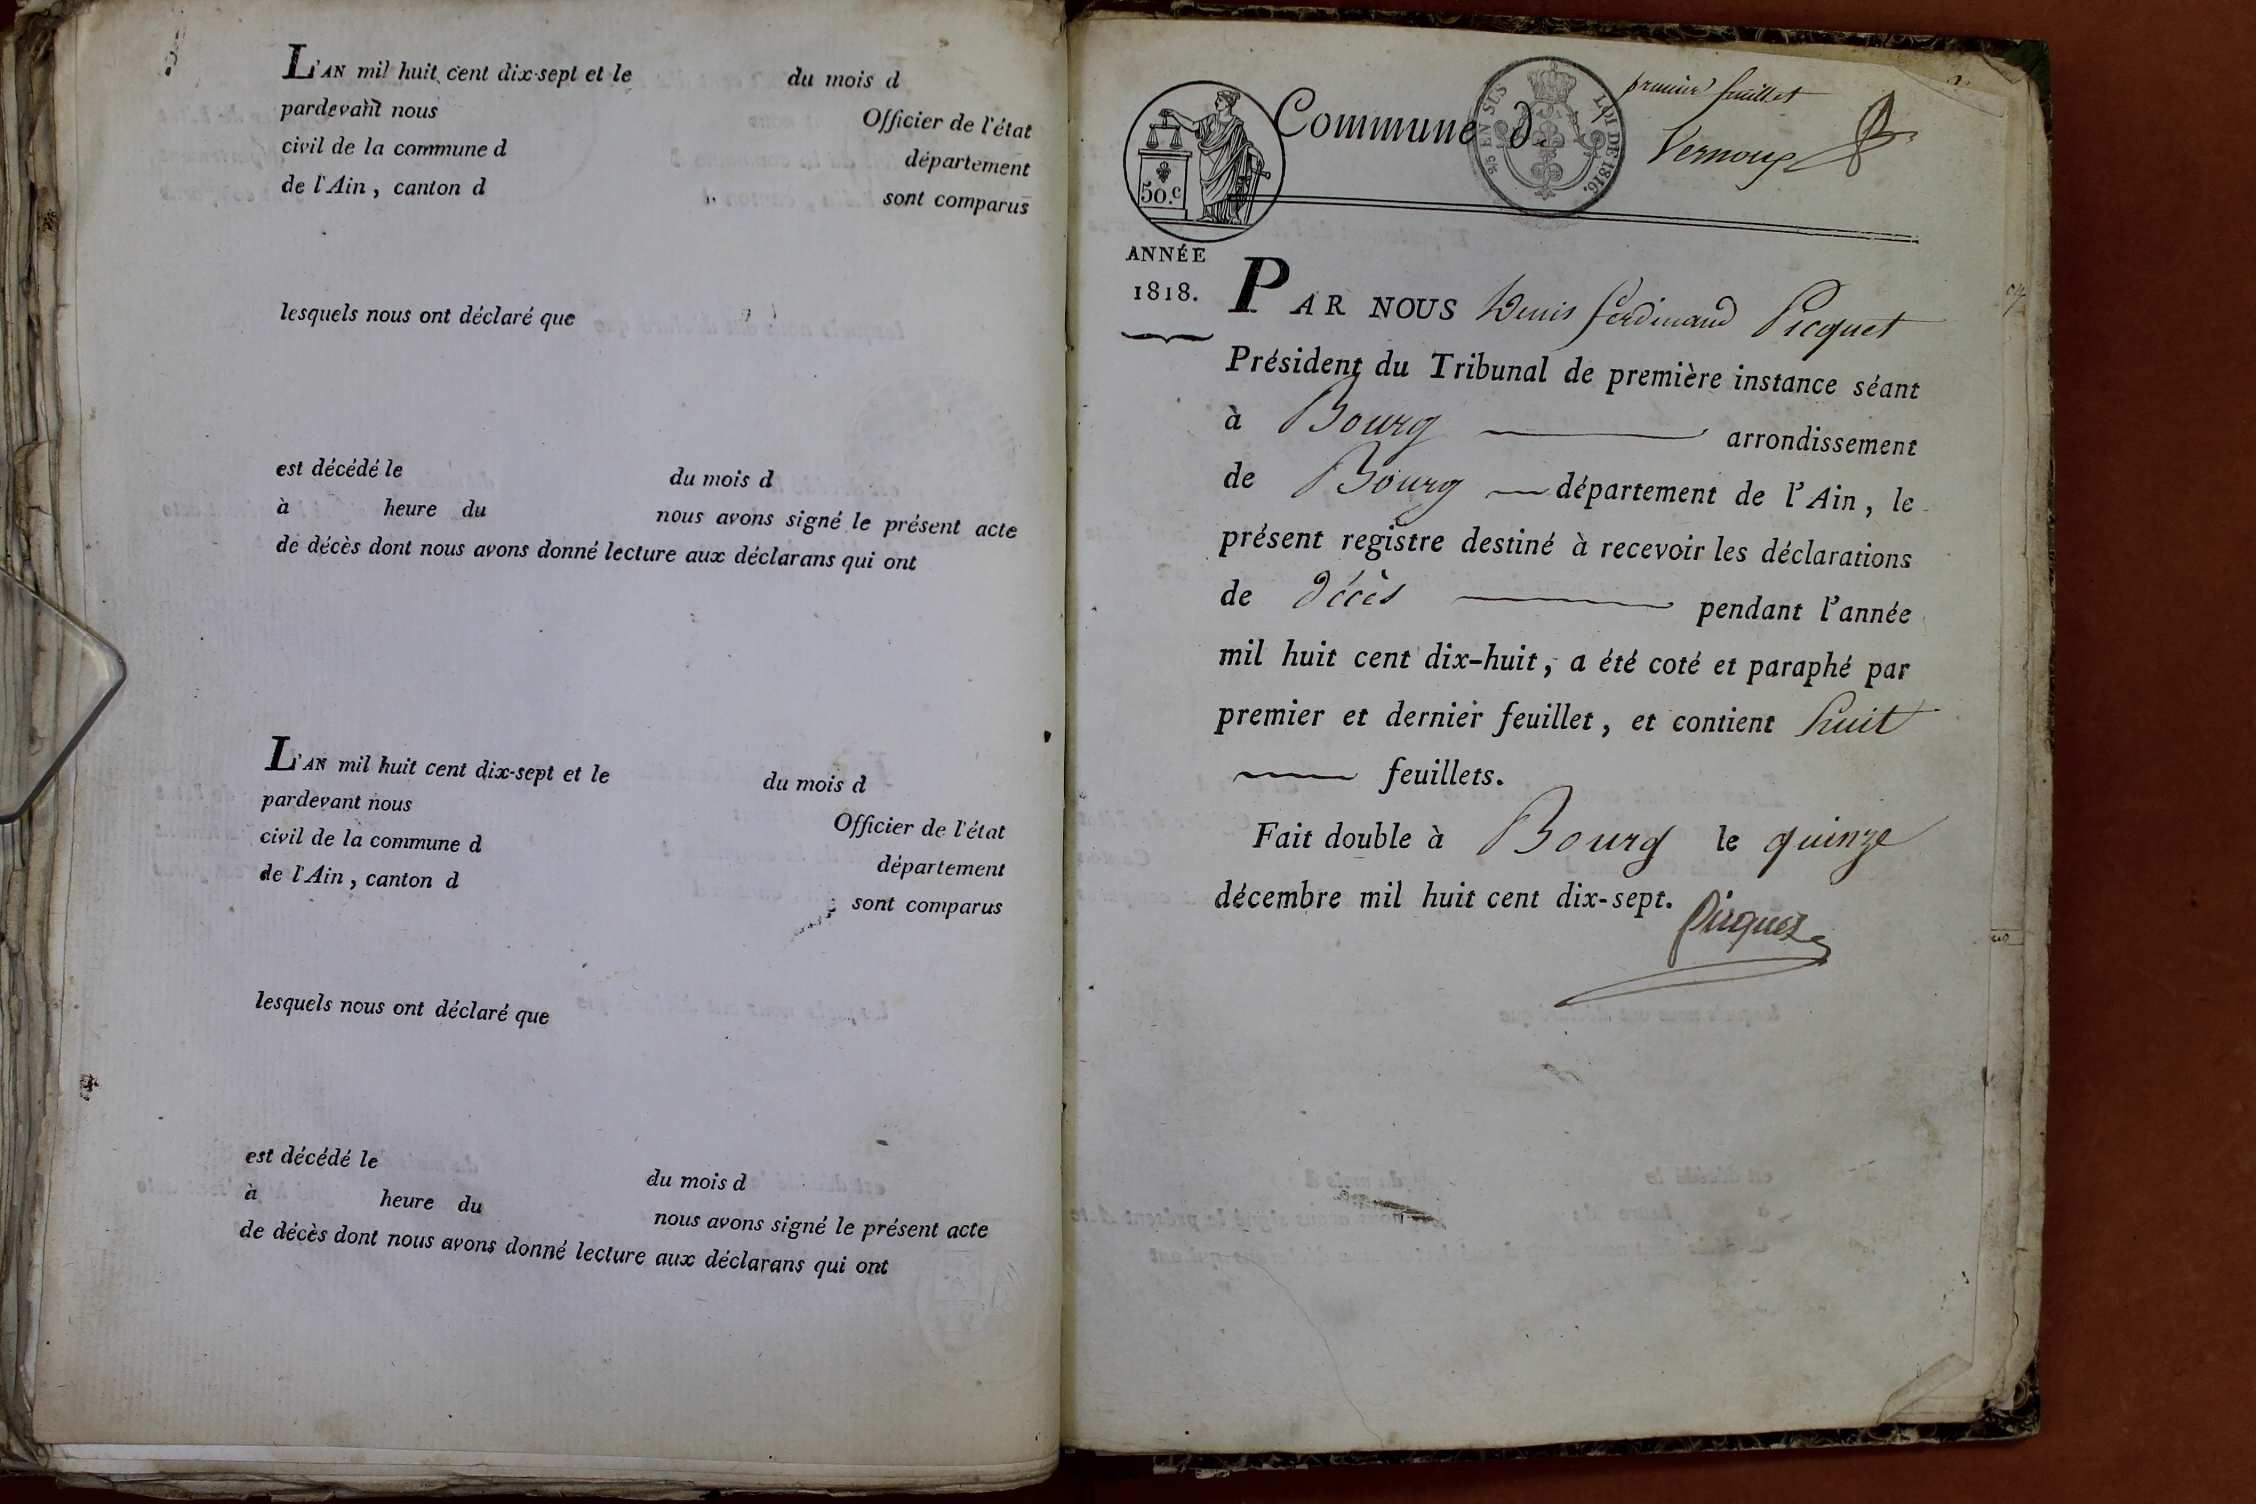 L'AN mil huit cent dix-sept et le du mois d
pardevant nous Officier de l'état
civil de la commune d département
de l'Ain, canton d sont comparus
lesquels nous ont déclaré que
est décédé le du mois d
à heure du nous avons signé le présent acte
de décès dont nous avons donné lecture aux déclarans qui ont
L'AN mil huit cent dix-sept et le du mois d
pardevant nous Officier de l'état
civil de la commune d département
de l'Ain, canton d sont comparus
lesquels nous ont déclaré que
est décédé le du mois d
à heure du nous avons signé le présent acte
de décès dont nous avons donné lecture aux déclarans qui ont
premier feuillet
Commune de Vernoux
50.c
EN SUS
LOI DE 1816.
ANNÉE
1818.
PAR NOUS Denis ferdinand Picquet
Président du Tribunal de première instance séant
à Bourg arrondissement
de Bourg département de l'Ain, le
présent registre destiné à recevoir les déclarations
de décès pendant l'année
mil huit cent dix-huit, a été coté et paraphé par
premier et dernier feuillet, et contient huit
feuillets.
Fait double à Bourg le quinze
décembre mil huit cent dix-sept.
Picquet